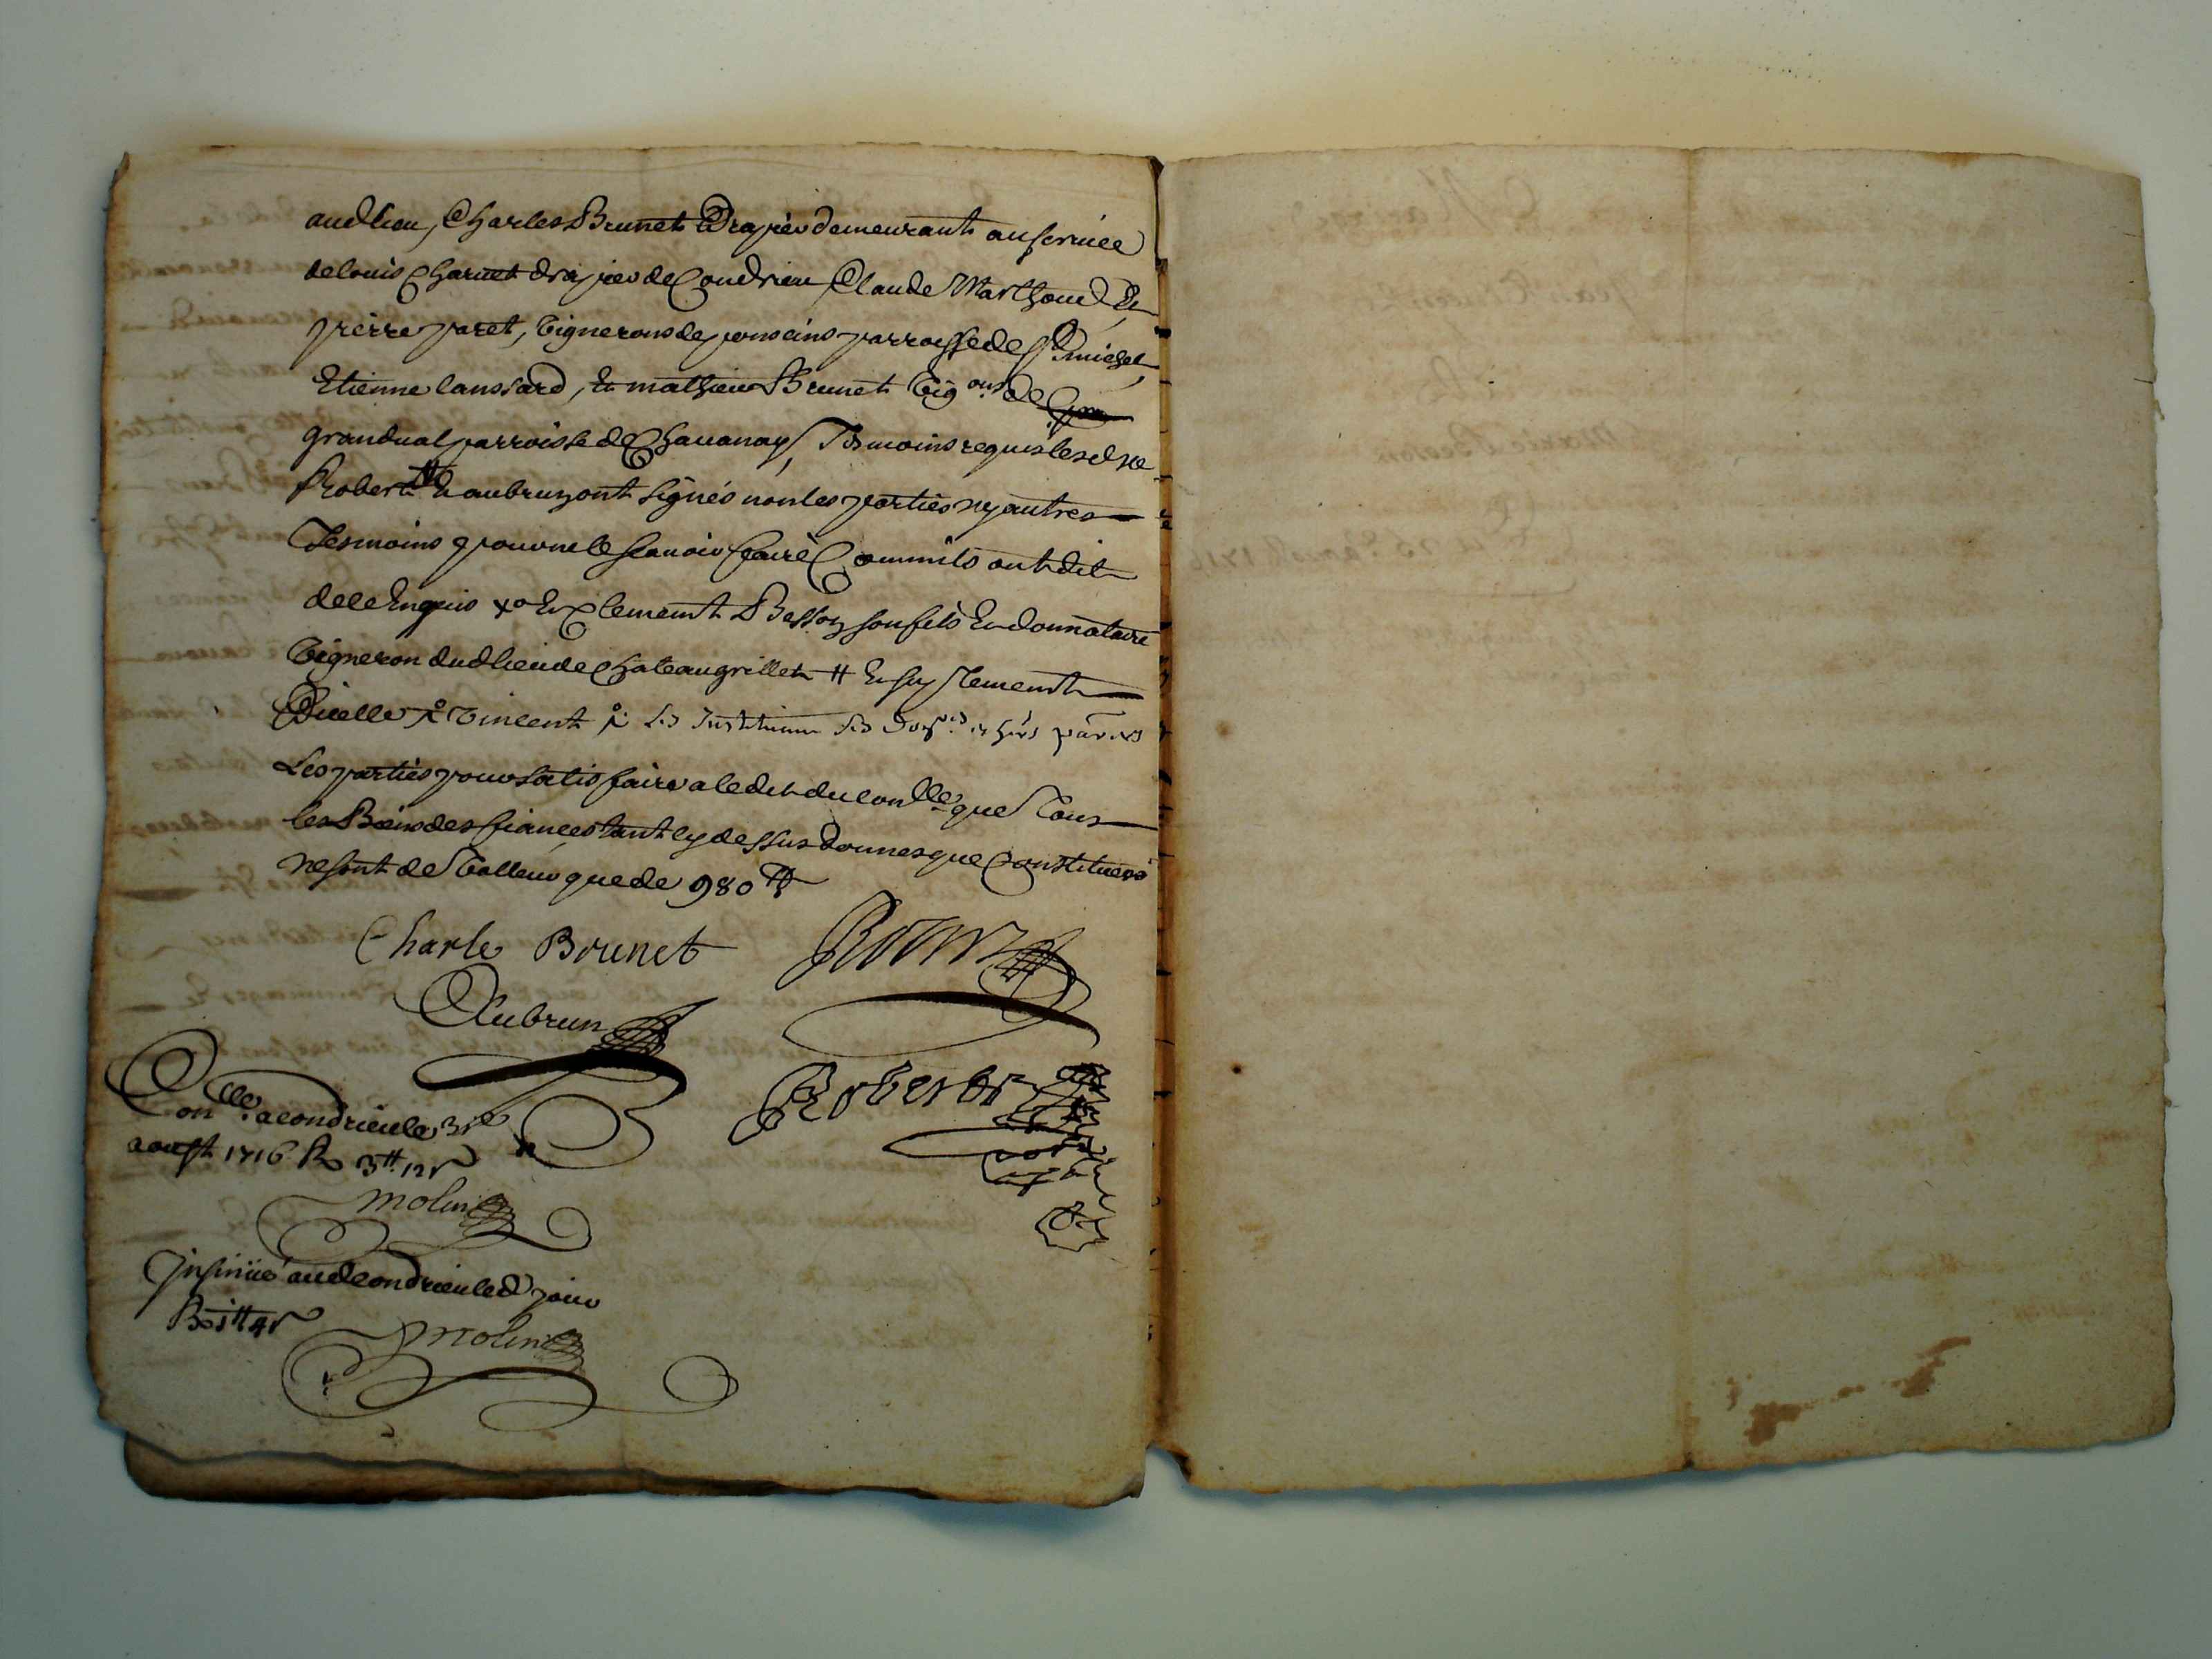 audlieu, Charles Brunet Drapier demeurant au service
de louis Charuet drapier de Condrieu Claude Marthoud Et
pierre paret, vignerons de ponsins parroisse de St michel,
Etienne lanssard, Et mathieu Brunet vig.ons de
grandual parroisse de Chauanay, Tesmoins requis lesd sr
Robert Et aubrun ont signés non les parties ny autres
Tesmoins pour ne le scauoir faire Comm'ils ont dit
de ce Enquis Et Clement Besson son fils Et donnataire
vigneron dud lieu de Chateaugrillet # Et sy Clement
Dicelle vincent
Les parties pour satisfaire a ledit du con.lle que Tous
les Biens des fiances tant cy dessus donnes que Constitués
ne sont de valleur que de 980 ₶
Charle Brunet
Aubrun
Robert
Con.lle a condrieu le 3.e
aoust 1716 R 3₶ 12s
molin
Insinüé aud condrieu led jour
R 1₶ 4s
molin